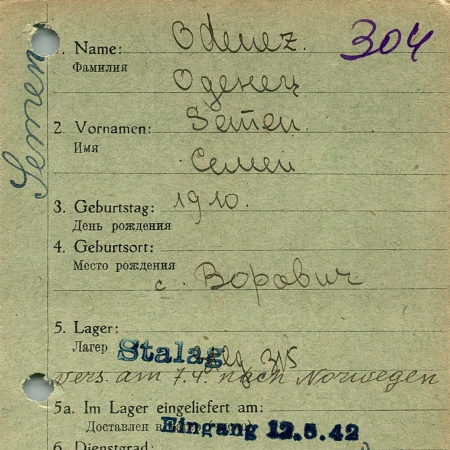 304
Semen
1. Name: Odenez.
Фамилия Оденец
2. Vornamen: Semen.
Имя Семен
3. Geburtstag: 1910.
День рождения
4. Geburtsort:
Место рождения с. Ворович
5. Lager:
Лагер Stalag
vers. am 7.4. nach Norwegen
5a. Im Lager eingeliefert am:
Доставлен в Eingang 12.5.42
6. Dienstgrad: